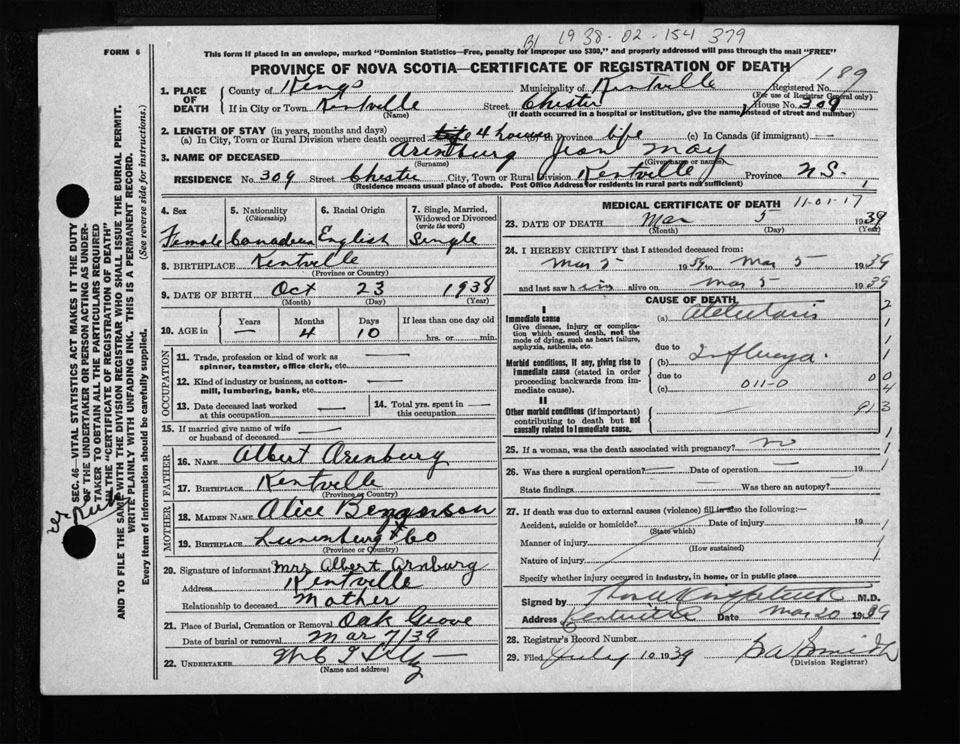 By 1938-02-154 379
FORM 6
This form if placed in an envelope, marked "Dominion Statistics—Free, penalty for improper use $300," and properly addressed will pass through the mail "FREE"
PROVINCE OF NOVA SCOTIA—CERTIFICATE OF REGISTRATION OF DEATH
189
1. PLACE OF DEATH
County of Kings Municipality of Kentville Registered No.
(For use of Registrar General only)
If in City or Town Kentville Street Chester House No. 309
(Name) (If death occurred in a hospital or institution, give the name instead of street and number)
2. LENGTH OF STAY (in years, months and days)
(a) In City, Town or Rural Division where death occurred life 4 hours (b) in Province life (c) In Canada (if immigrant)
3. NAME OF DECEASED Arenburg Jean May
(Surname) (Given name or names)
RESIDENCE No. 309 Street Chester City, Town or Rural Division Kentville Province N.S.
(Residence means usual place of abode. Post Office Address for residents in rural parts not sufficient)
4. Sex 5. Nationality (Citizenship) 6. Racial Origin 7. Single, Married, Widowed or Divorced (write the word)
Female Canadian English Single
8. BIRTHPLACE Kentville
(Province or Country)
9. DATE OF BIRTH Oct 23 1938
(Month) (Day) (Year)
10. AGE in Years Months Days If less than one day old
— 4 10 hrs. or min.
OCCUPATION
11. Trade, profession or kind of work as spinner, teamster, office clerk, etc. —
12. Kind of industry or business, as cotton-mill, lumbering, bank, etc. —
13. Date deceased last worked at this occupation —
14. Total yrs. spent in this occupation —
15. If married give name of wife or husband of deceased —
FATHER
16. NAME Albert Arenburg
17. BIRTHPLACE Kentville
(Province or Country)
MOTHER
18. MAIDEN NAME Alice
19. BIRTHPLACE Lunenburg Co
(Province or Country)
20. Signature of informant Mrs Albert Arnburg
Address Kentville
Relationship to deceased Mother
21. Place of Burial, Cremation or Removal Oak Grove
Date of burial or removal Mar 7/39
22. UNDERTAKER
(Name and address)
MEDICAL CERTIFICATE OF DEATH 11-01-17
23. DATE OF DEATH Mar 5 1939
(Month) (Day) (Year)
24. I HEREBY CERTIFY that I attended deceased from:
Mar 5 1939 to Mar 5 1939
and last saw him alive on Mar 5 1939
CAUSE OF DEATH
I
Immediate cause (a) Atelectasis
Give disease, injury or complication which caused death, not the mode of dying, such as heart failure, asphyxia, asthenia, etc.
due to
Morbid conditions, if any, giving rise to immediate cause (stated in order proceeding backwards from immediate cause).
(b) Influenza.
due to 011-0
(c)
II
Other morbid conditions (if important) contributing to death but not causally related to immediate cause.
2
1
1
1
1
0 0
4
913
25. If a woman, was the death associated with pregnancy? no
26. Was there a surgical operation? — Date of operation — 19
State findings Was there an autopsy?
27. If death was due to external causes (violence) fill in also the following:—
Accident, suicide or homicide? Date of injury 19
(State which)
Manner of injury
(How sustained)
Nature of injury
Specify whether injury occurred in industry, in home, or in public place
Signed by M.D.
Address Date Mar 20 1939
28. Registrar's Record Number
29. Filed July 10 1939
(Division Registrar)
SEC. 46—VITAL STATISTICS ACT MAKES IT THE DUTY
OF THE UNDERTAKER OR PERSON ACTING AS UNDER-
TAKER TO OBTAIN ALL THE PARTICULARS REQUIRED
IN THE "CERTIFICATE OF REGISTRATION OF DEATH"
AND TO FILE THE SAME WITH THE DIVISION REGISTRAR WHO SHALL ISSUE THE BURIAL PERMIT.
WRITE PLAINLY WITH UNFADING INK. THIS IS A PERMANENT RECORD.
Every item of information should be carefully supplied. (See reverse side for instructions.)